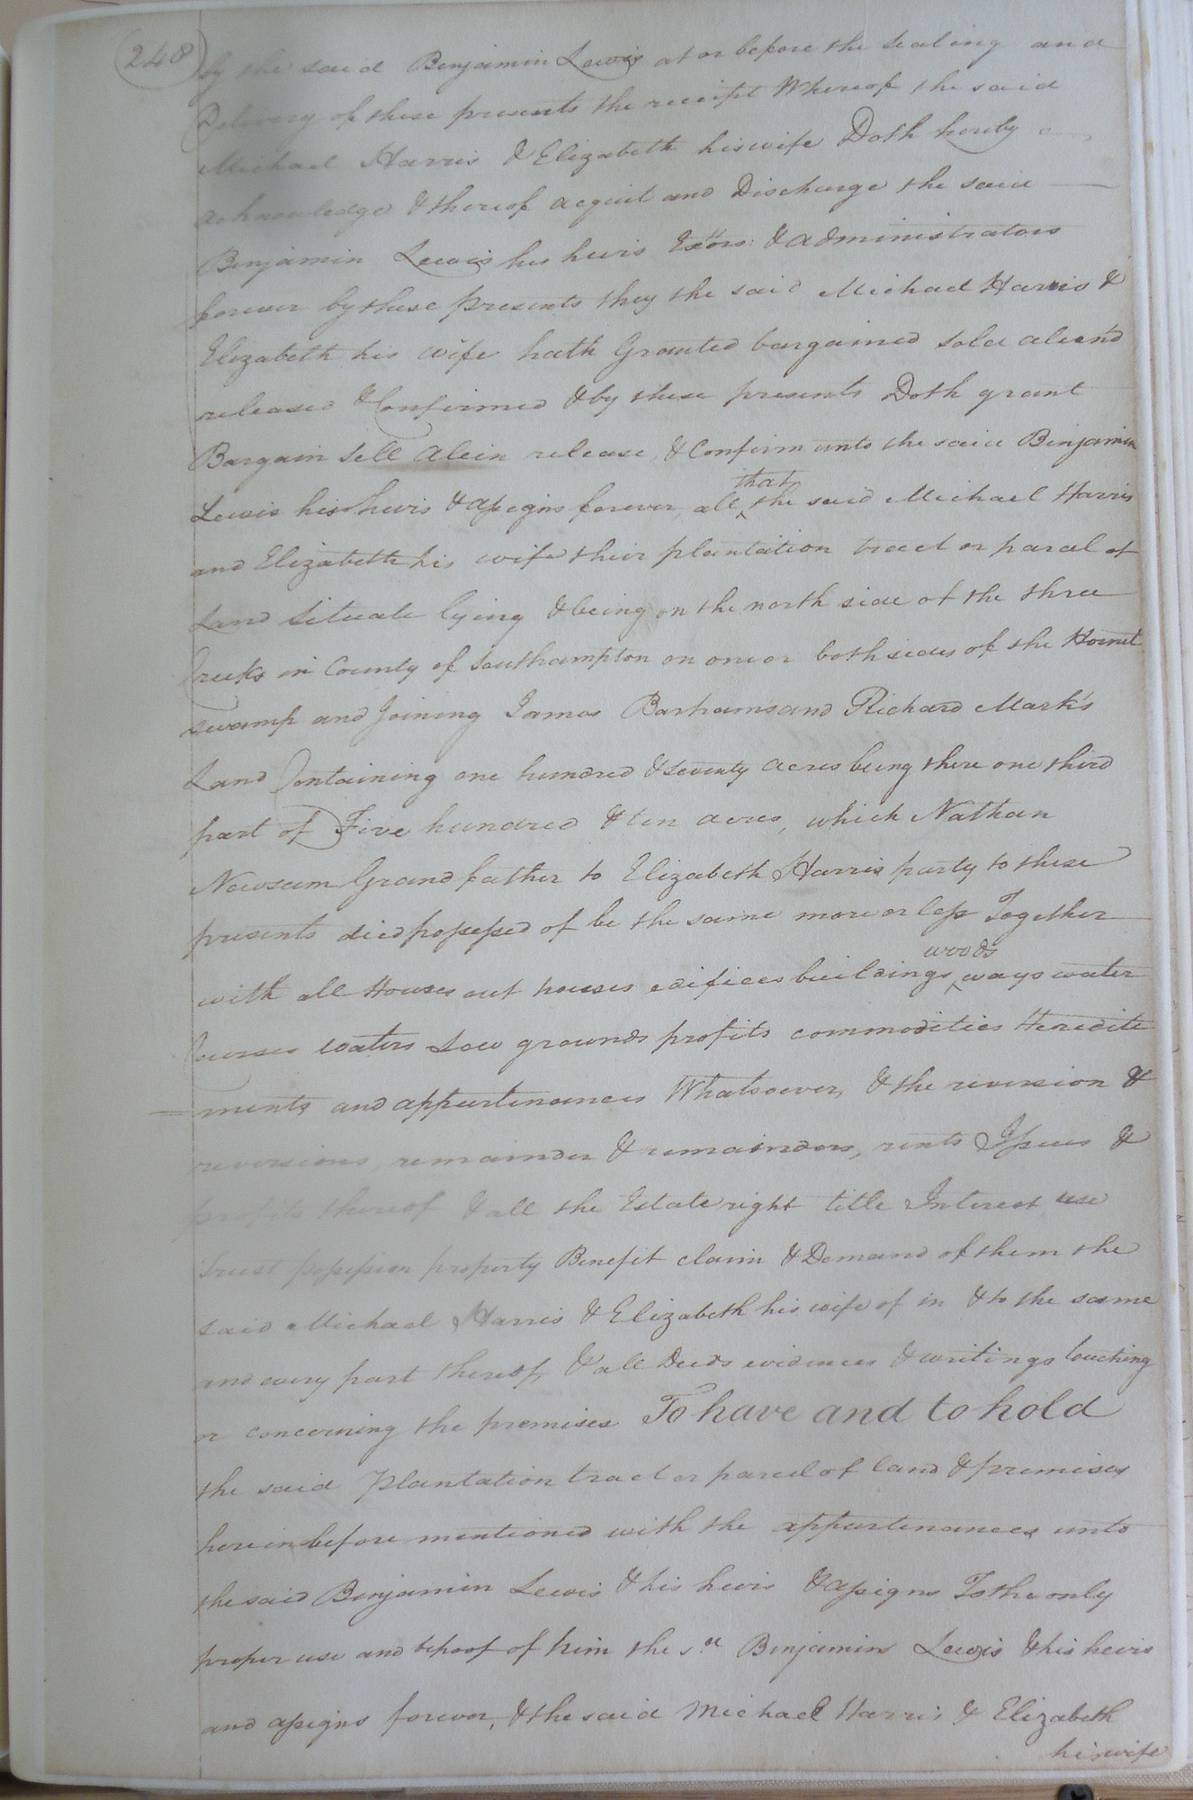 248
by the said Benjamin Lewis at or before the Sealing and
Delivery of these presents the receipt Whereof the said
Michael Harris & Elizabeth his wife Doth hereby
acknowledge & thereof acquit and Discharge the said
Benjamin Lewis his heirs Exors: & administrators
forever by these presents they the said Michael Harris &
Elizabeth his wife hath Granted bargained Sold alien'd
released & Confirmed & by these presents Doth grant
Bargain Sell alein release & Confirm unto the said Benjamin
Lewis his heirs & assigns forever, all that the said Michael Harris
and Elizabeth his wife their plantation tract or parcal of
Land Situate lying & being on the north side of the three
Creeks in County of Southampton on one or both sides of the Hornet
swamp and Joining James Barhams and Richard Mark's
Land Containing one hundred & seventy acres being there one third
part of Five hundred & ten acres, which Nathan
Newsum Grand father to Elizabeth Harris party to these
presents died possessed of be the same more or less Together
with all Houses out houses edifices buildings woods ways water
Courses waters Low grounds profits commodities Heredite
ments and appurtenances Whatsoever, & the reversion &
reversions, remainder & remainders, rents Issues &
profits thereof & all the Estate right title Interest use
trust possession property Benefit claim & Demand of them the
said Michael Harris & Elizabeth his wife of in & to the same
and every part thereof, & all Deeds evidences & writings touching
or concerning the premises To have and to hold
the said Plantation tract or parcel of land & premises
herein before mentioned with the appurtenances unto
the said Benjamin Lewis & his heirs & assigns To the only
proper use and behoof of him the sd Benjamin Lewis & his heirs
and assigns forever, & the said Michael Harris & Elizabeth
his wife